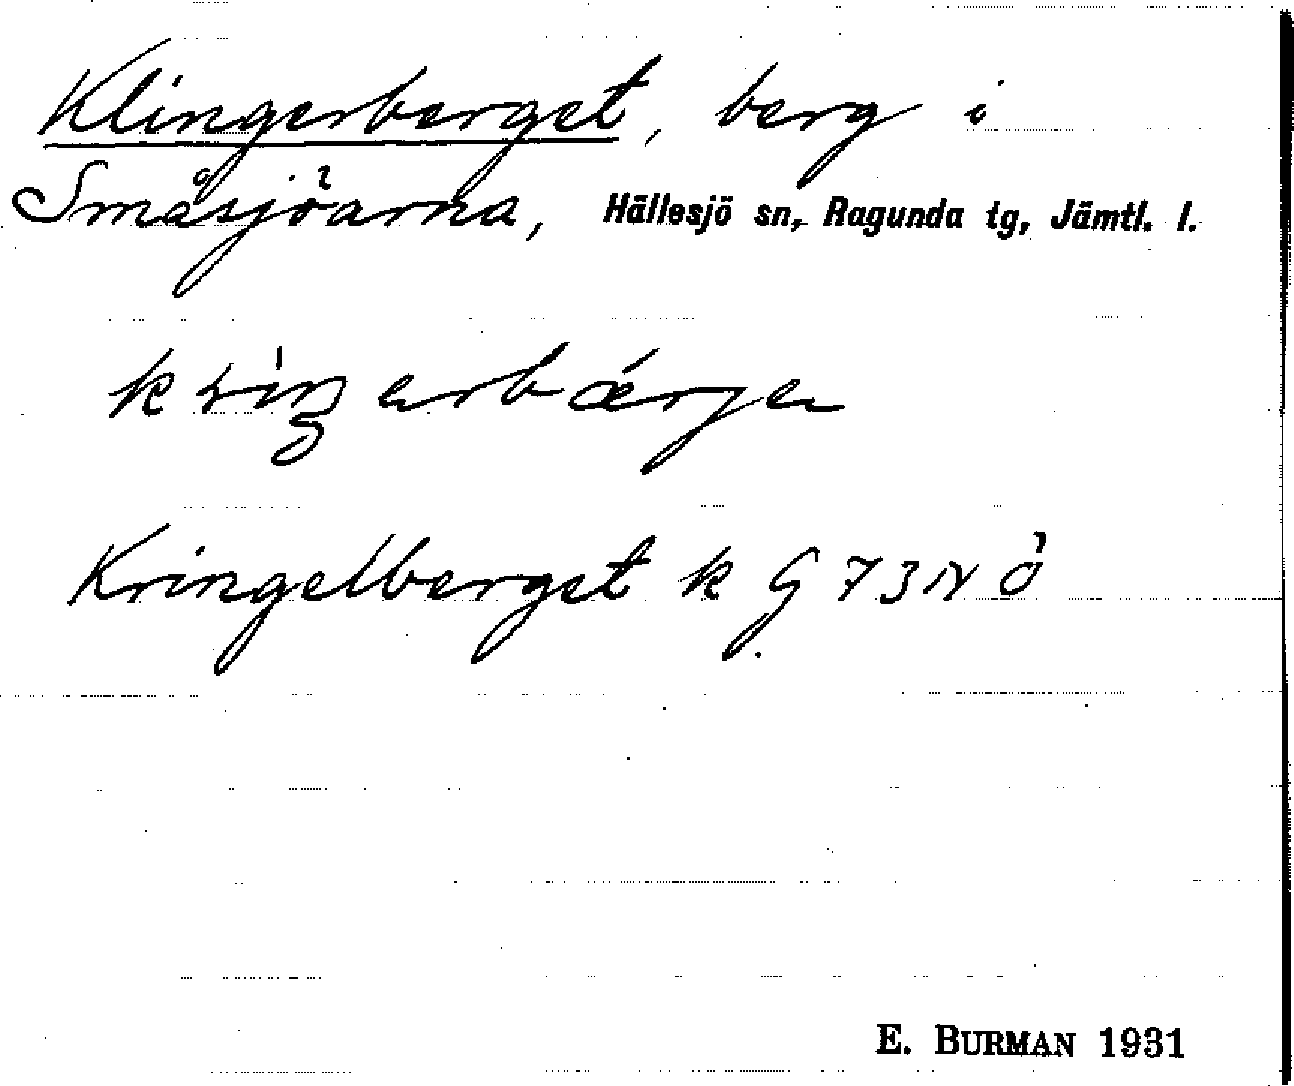 Klingerberget, berg i
Småsjöarna, Hällesjö sn, Ragunda tg, Jämtl. l.
Kringelberget k G 73 NÖ
E. BURMAN 1931